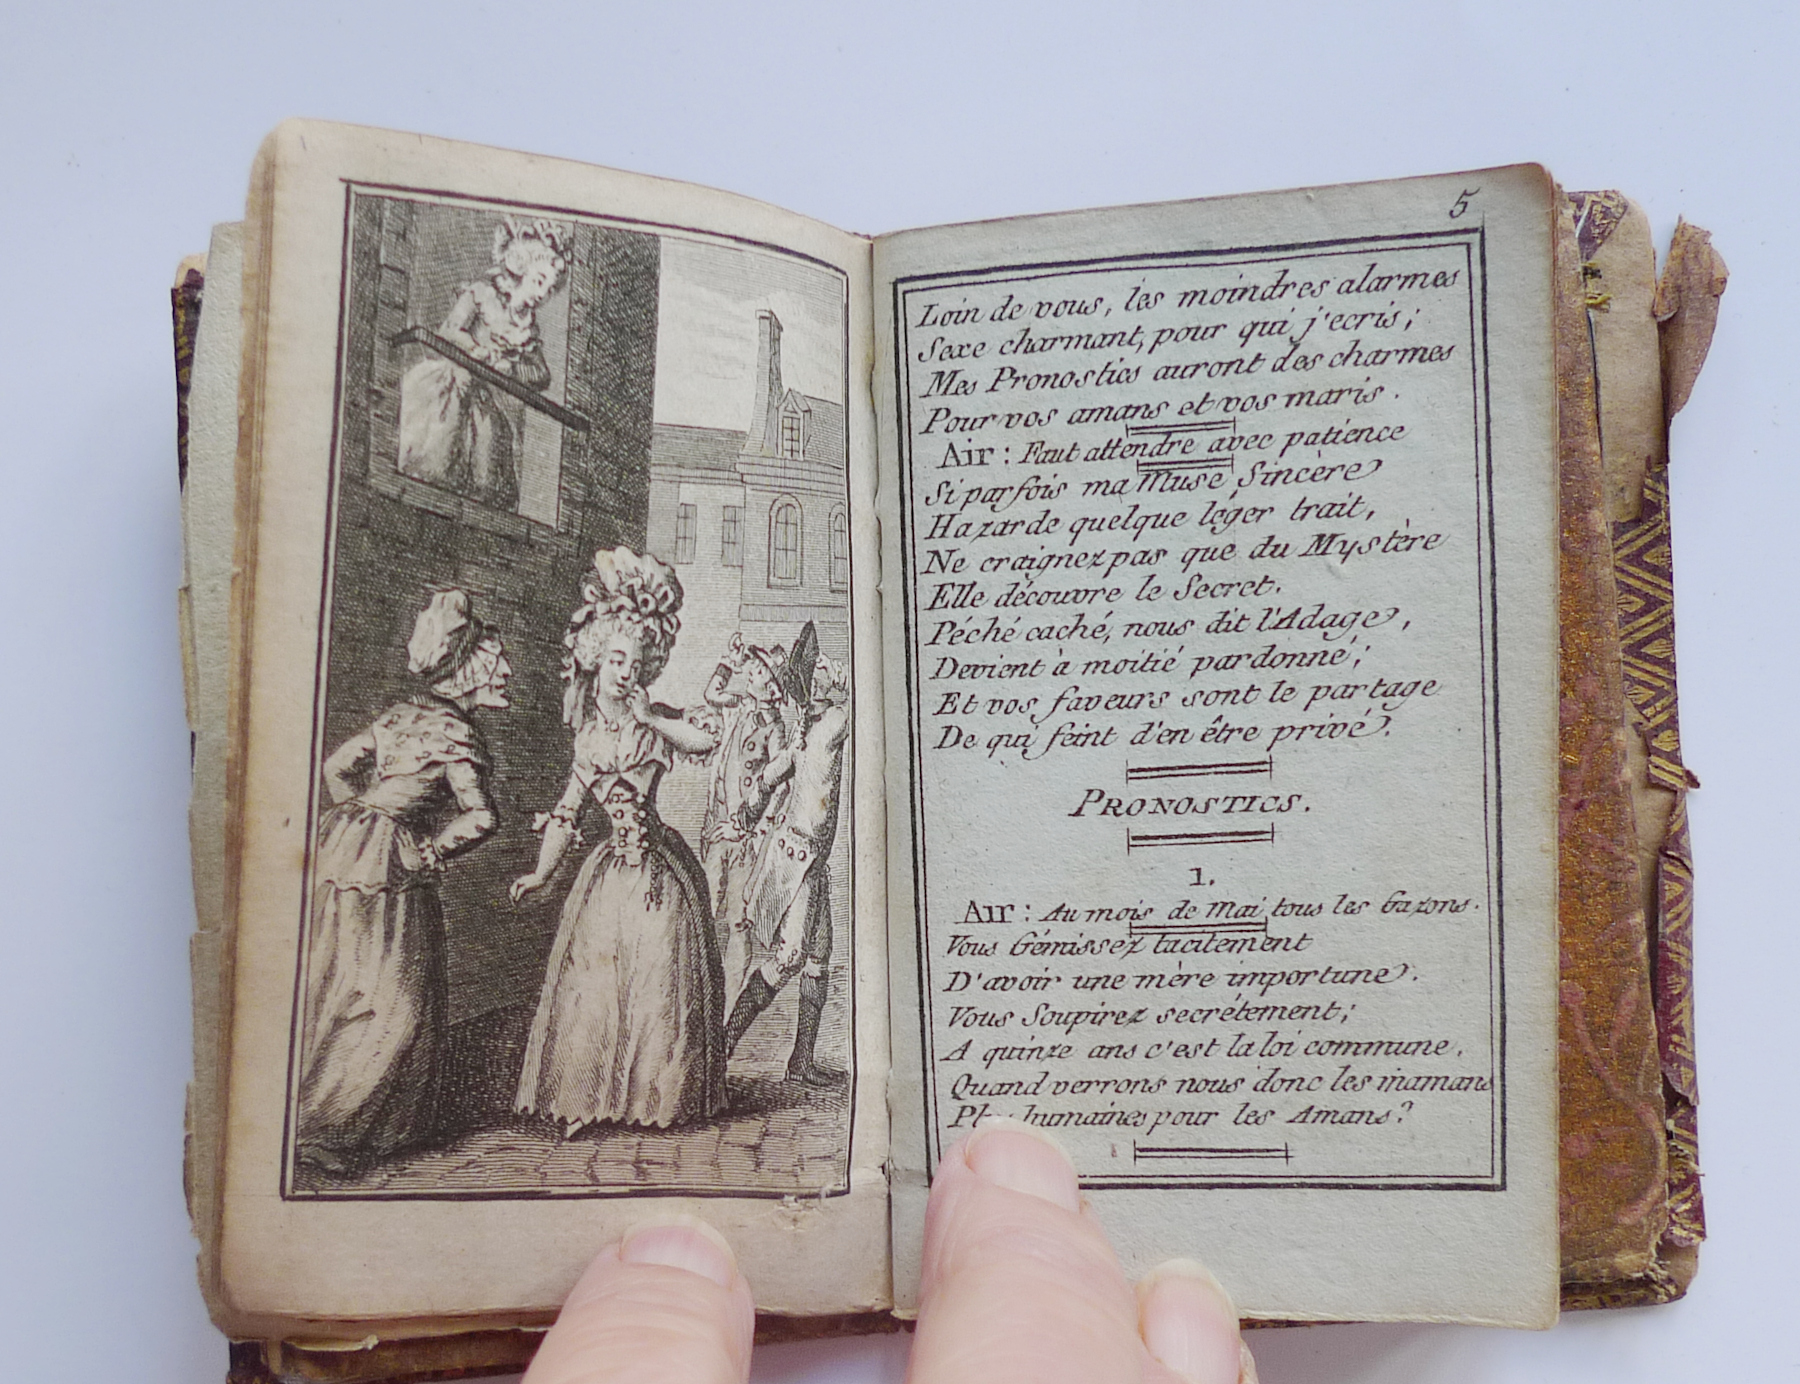 5
Loin de vous, les moindres alarmes
Sexe charmant, pour qui j'ecris;
Mes Pronostics auront des charmes
Pour vos amans et vos maris.
Air: Faut attendre avec patience
Si parfois ma Muse Sincère
Hazarde quelque léger trait,
Ne craignez pas que du Mystère
Elle découvre le Secret.
Péché caché, nous dit l'Adage,
Devient à moitié pardonné;
Et vos faveurs sont le partage
De qui feint d'en être privé.
PRONOSTICS.
1.
Air: Au mois de Mai tous les Gazons.
Vous Gémissez tacitement
D'avoir une mère importune.
Vous Soupirez secrétement;
A quinze ans c'est la loi commune.
Quand verrons nous donc les mamans
humaines pour les Amans?